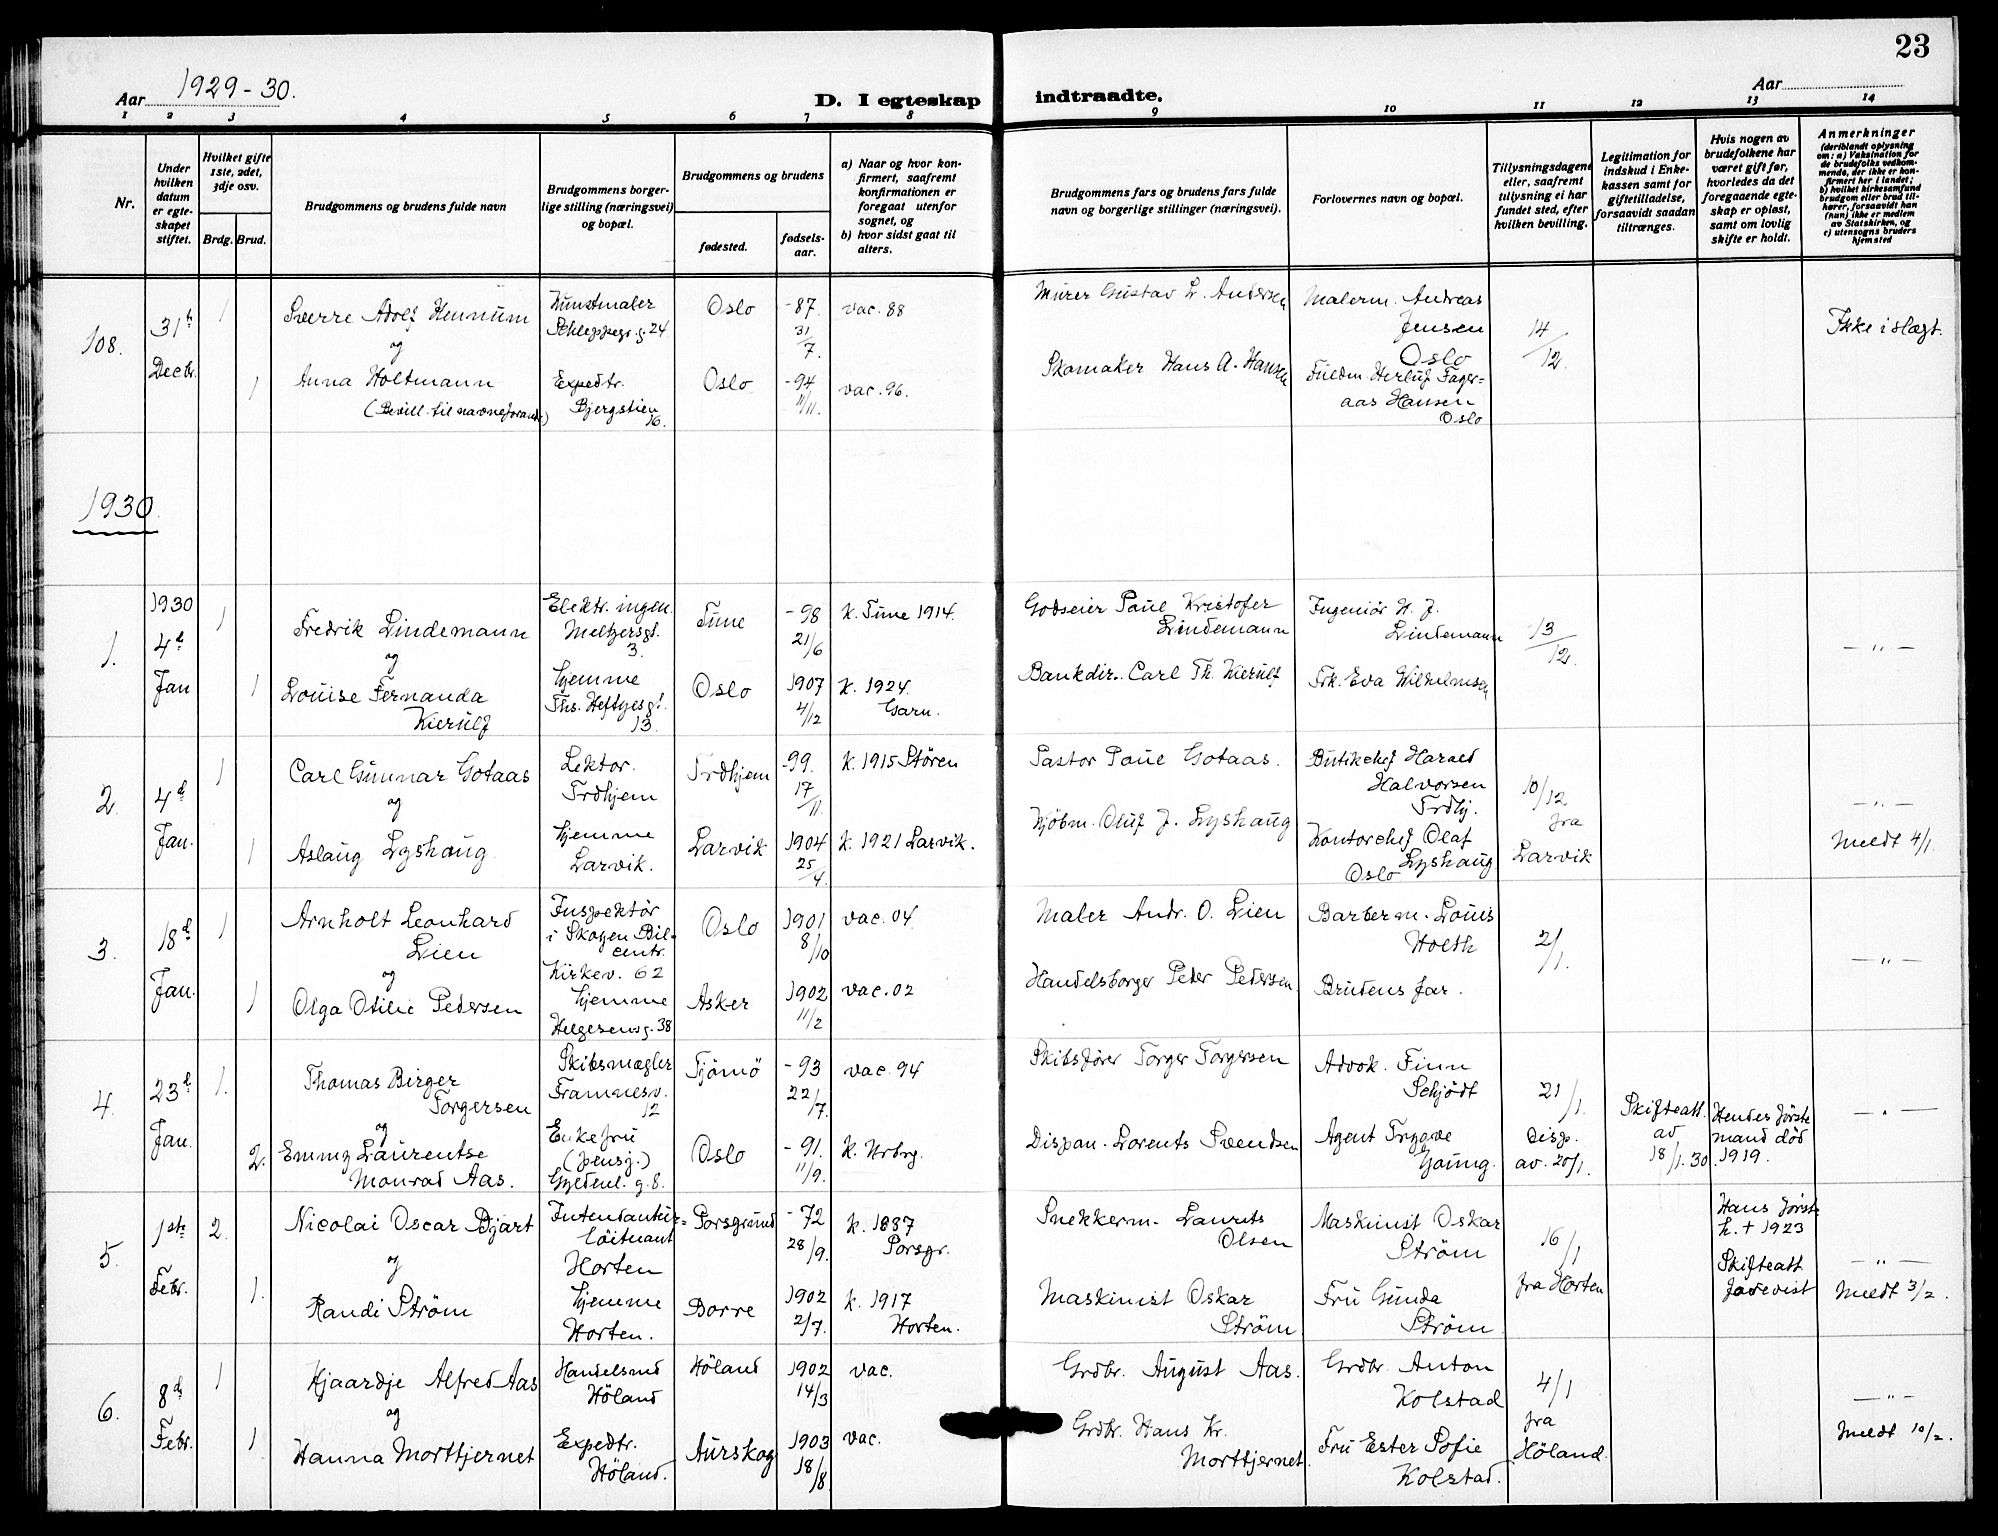 23
Aar 1929-30.
D. I egteskap indtraadte.
Aar
1 2 3 4 5 6 7 8 9 10 11 12 13 14
Nr.
Under hvilken datum er egteskapet stiftet.
Hvilket gifte 1ste, 2det, 3dje osv.
Brdg. Brud.
Brudgommens og brudens fulde navn
Brudgommens borgerlige stilling (næringsvei) og bopæl.
Brudgommens og brudens
fødested.
fødselsaar.
a) Naar og hvor konfirmert, saafremt konfirmationen er foregaat utenfor sognet, og
b) hvor sidst gaat til alters.
Brudgommens fars og brudens fars fulde navn og borgerlige stillinger (næringsvei).
Forlovernes navn og bopæl.
Tillysningsdagene eller, saafremt tillysning ei har fundet sted, efter hvilken bevilling.
Legitimation for indskud i Enkekassen samt for giftetilladelse, forsaavidt saadan tiltrænges.
Hvis nogen av brudefolkene har været gift før, hvorledes da det foregaaende egteskap er opløst, samt om lovlig skifte er holdt.
Anmerkninger
(deriblandt oplysning om: a) Vaksination for de brudefolks vedkommende, der ikke er konfirmert her i landet;
b) hvilket kirkesamfund brudgom eller brud tilhører, forsaavidt han (hun) ikke er medlem av Statskirken, og
c) utensogns bruders hjemsted
108. 31te Decbr. 1
Sverre Adolf Hennum
og
1 Anna Holtmann
(Bevill. til navneforandr.)
Kunstmaler
Schleppegr.g. 24
Expedtr.
Bjergstien 16.
Oslo -87 31/7. vac. 88
Oslo -94 11/11. vac. 96.
Murer Gustav L. Andersen
Skomaker Hans A. Hansen
Malerm. Andreas
Jensen
Oslo
Fuldm. Herluf Fager=
aas Hansen
Oslo
14/12.
Ikke i slægt.
1930
1. 1930 4d Jan 1
Fredrik Lindemann
og
1 Louise Fernanda
Kierulf
Elektr. ingen.
Meltzersgt.
3.
hjemme
Ths. Heftyesgt.
13.
Tune -98 21/6 k. Tune 1914.
Oslo 1907 4/12 k. 1924.
Garn.
Godseier Paul Kristofer
Lindemann
Bankdir. Carl Th. Kierulf
Ingeniør H. J.
Lindemann
Frk. Eva Wilhelmsen
13/12.
— „ —
2. 4d Jan. 1
Carl Gunnar Gotaas
og
1 Aslaug Lyshaug
Lektor.
Trdhjem
hjemme
Larvik.
Trdhjem -99. 17/11. k. 1915 Støren
Larvik 1904 25/4. k. 1921 Larvik.
Pastor Paul Gotaas.
Kjøbm. Oluf J. Lyshaug
Butikchef Harald
Halvorsen
Trdhj.
Kontorchef Olaf
Lyshaug
Oslo
10/12
fra
Larvik
— „ —
Meldt 4/1.
3. 18d Jan. 1
Arnholt Leonhard
Lien
og
1 Olga Otilie Pedersen
Inspektør
i Skøyen Bil=
centr.
Kirkev. 62
hjemme
Helgesensg. 38
Oslo 1901 8/10 vac. 04.
Asker 1902 11/2 vac. 02
Maler Andr. O. Lien
Handelsborger Peder Pedersen
Barberm. Louis
Holth
Brudens far.
2/1.
— „ —
4. 23d Jan. 1.
Thomas Birger
Torgersen
og
2. Emmy Laurentse
Monrad Aas.
Skibsmægler
Framnesv.
12
Enkefru
(pensj.)
Gyldenl. g. 8.
Tjömö -93 22/7. vac. 94
Oslo -91. 11/9. k. Krbrg.
Skibsfører Torger Torgersen
Dispon. Lorents Svendsen
Advok. Finn
Schjödt
Agent Trygve
Young.
21/1.
Disp.
av. 20/1.
Skifteatt.
av
18/1. 30.
Hendes første
mand død
1919.
— „ —
5. 1ste Febr. 2.
Nicolai Oscar Bjart
og
1. Randi Ström
Intendantur=
löitnant
Horten
hjemme
Horten.
Porsgrund -72 28/9. k. 1887
Porsgr.
Borre 1902 2/7. k. 1917
Horten.
Snekkerm. Laurits
Olsen
Maskinist Oskar
Ström
Maskinist Oskar
Ström
Fru Gunda
Ström
16/1
fra Horten
Hans første
h. † 1923
Skifteatt
forevist
— „ —
Meldt 3/2.
6. 8d Febr. 1
Kjaardje Alfred Aas
og
1 Hanna Morttjernet
Handelsmd
Höland
Expedtr.
Höland.
Höland 1902 14/3 vac.
Aurskog 1903 18/8 vac.
Grdbr. August Aas.
Grdbr. Hans Kr.
Morttjernet.
Grdbr. Anton
Kolstad
Fru Ester Sofie
Kolstad.
4/1
fra
Höland.
— „ —
Meldt 10/2.